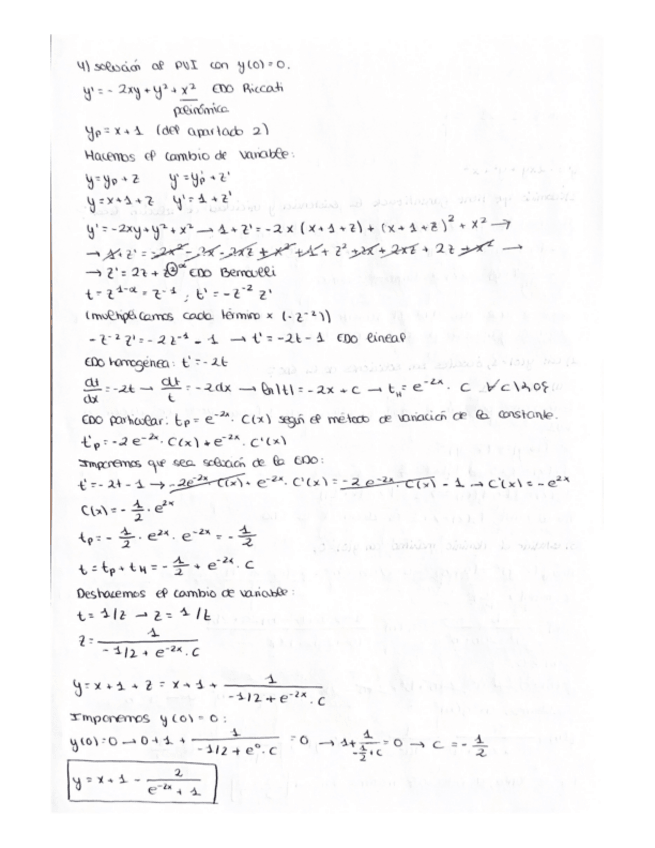 4) solución al PVI con y(0)=0.
y' = -2xy + y² + x² EDO Riccati
polinómica
yp = x+1 (del apartado 2)
Hacemos el cambio de variable:
y = yp + z y' = yp' + z'
y = x+1+z y' = 1+z'
y' = -2xy + y² + x² → 1+z' = -2x(x+1+z) + (x+1+z)² + x² →
→ 1+z' = -2x² - 2x - 2xz + x² + 1 + z² + 2x + 2xz + 2z + x² →
→ z' = 2z + z²^α EDO Bernoulli
t = z^(1-α) = z⁻¹ ; t' = -z⁻² z'
(multiplicamos cada término × (-z⁻²))
-z⁻² z' = -2z⁻¹ - 1 → t' = -2t - 1 EDO lineal
EDO homogénea: t' = -2t
dt/dx = -2t → dt/t = -2dx → ln|t| = -2x + c → t_H = e^(-2x) · C ∀C\{0}.
EDO particular: tp = e^(-2x) · C(x) según el método de variación de la constante.
t'p = -2e^(-2x) · C(x) + e^(-2x) · C'(x)
Imponemos que sea solución de la EDO:
t' = -2t - 1 → -2e^(-2x) C(x) + e^(-2x) · C'(x) = -2e^(-2x) C(x) - 1 → C'(x) = -e^(2x)
C(x) = -1/2 · e^(2x)
tp = -1/2 · e^(2x) · e^(-2x) = -1/2
t = tp + t_H = -1/2 + e^(-2x) · C
Deshacemos el cambio de variable:
t = 1/z → z = 1/t
z = 1/(-1/2 + e^(-2x) · C)
y = x+1+z = x+1+ 1/(-1/2 + e^(-2x) · C)
Imponemos y(0)=0:
y(0)=0 → 0+1+ 1/(-1/2 + e⁰ · C) = 0 → 1+ 1/(-1/2 + C) = 0 → C = -1/2
y = x+1 - 2/(e^(-2x) + 1)